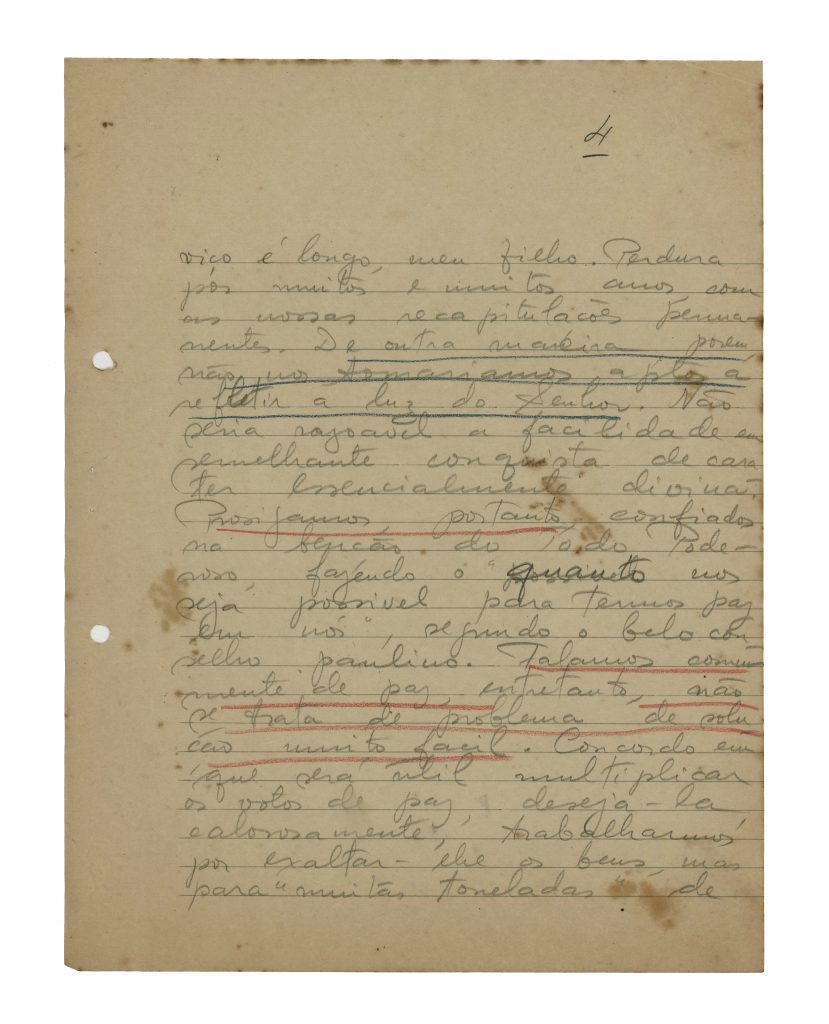 4
viço é longo, meu filho. Perdura
pós muitos e muitos anos com
as nossas recapitulações perma-
nentes. De outra maneira porem
não nos tornariamos aptos á
refletir a luz do Senhor. Não
seria razoavel a facilidade em
semelhante conquista de cara
ter essencialmente divina.
Prosigamos, portanto, confiados
na benção do Todo Pode-
roso, fazendo o "quanto nos
seja possivel para termos paz
em nós", segundo o belo con
selho paulino. Falamos comum
mente de paz, entretanto, não
se trata de problema de solu
ção muito facil. Concordo em
que será útil multiplicar
os votos de paz, deseja-la
calorosamente, trabalharmos
por exaltar-lhe os bens, mas
para "muitas toneladas" de